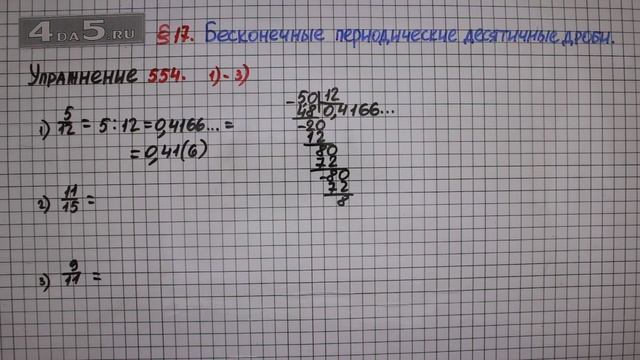 4DA5.RU
§17. Бесконечные периодические десятичные дроби.
Упражнение 554. 1)-3)
1) 5/12 = 5:12 = 0,4166... =
= 0,41(6)
2) 11/15 =
3) 9/11 =
-50|12
48|0,4166...
-20
12
80
72
-80
72
8